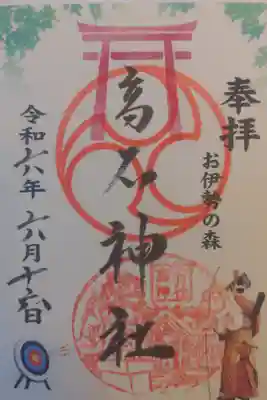 奉拝
お伊勢の森
高石神社
令和六年六月十六日